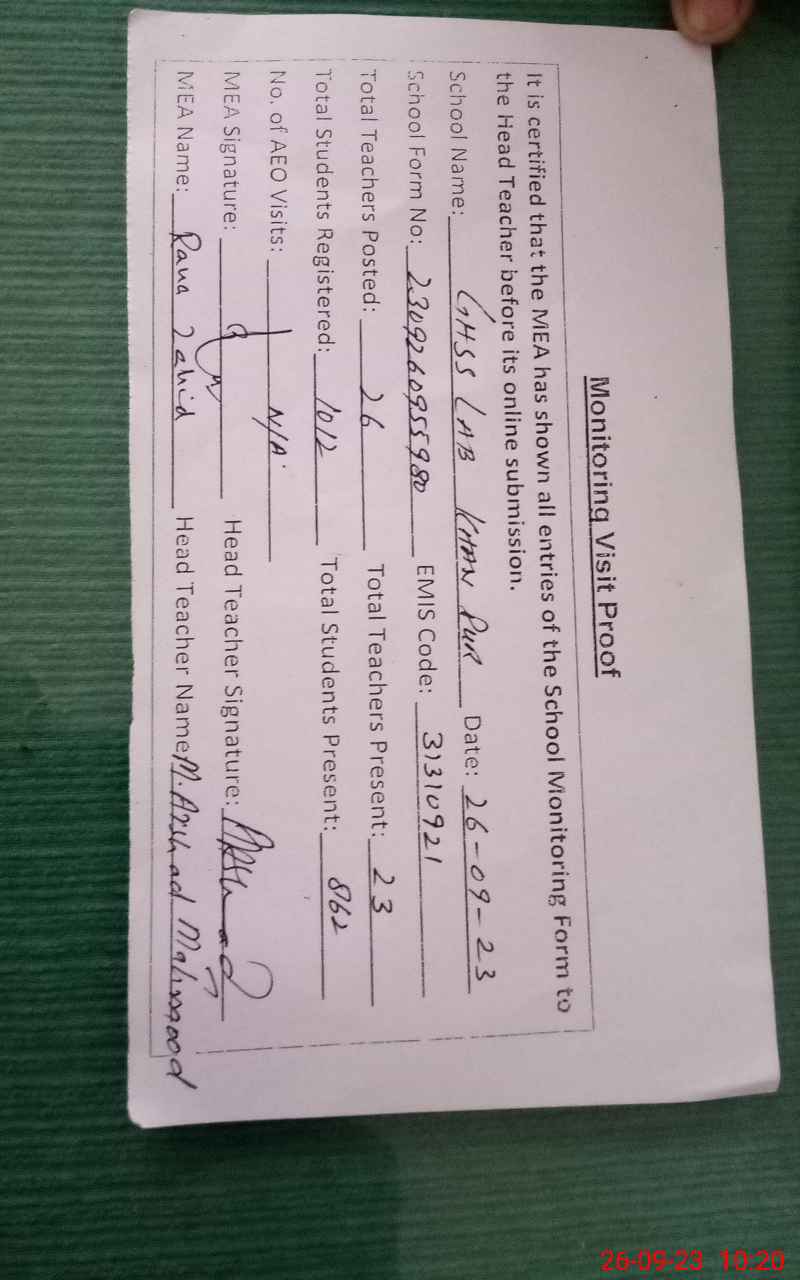 Monitoring Visit Proof
It is certified that the MEA has shown all entries of the School Monitoring Form to
the Head Teacher before its online submission.
School Name: GHSS LAB KHAN PUR Date: 26-09-23
School Form No: 2309260955980 EMIS Code: 31310921
Total Teachers Posted: 26 Total Teachers Present: 23
Total Students Registered: 1012 Total Students Present: 862
No. of AEO Visits: N/A
MEA Signature: Head Teacher Signature: Arshad
MEA Name: Rana Zahid Head Teacher Name: M. Arshad Mahmood
26-09-23 10:20